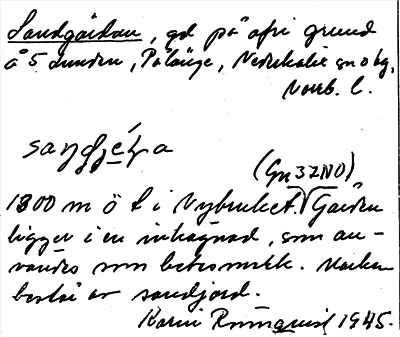 Sandgärdan, gd på ofri grund
å S Lunden, Pålänge, Nederkalix sn o bg,
Norrb. l.
(Gn 3ZNO)
1300 m ö t i Nybruket. Gården
ligger i en inhägnad, som an-
vändes som betesmark. Marken
består av sandjord.
Karin Rönnqvist 1945.